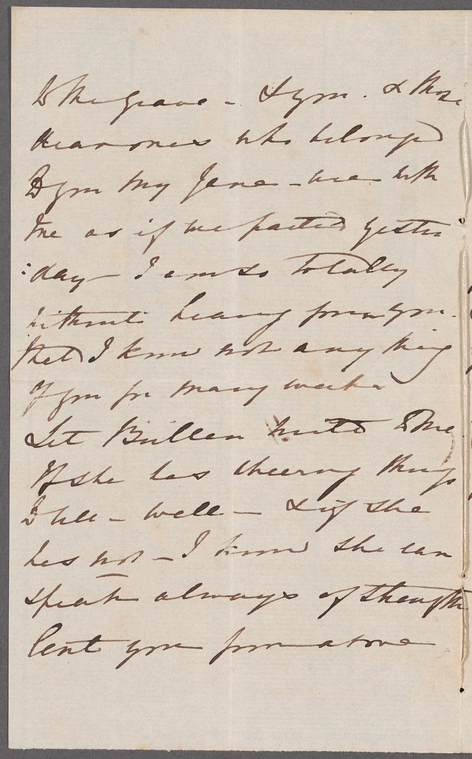 to the Grave - & you. & those
dear ones who belonged
to you my Jane - are with
me as if we parted yester
:day - I am so totally
without hearing from you.
that I know not any thing
of you for many weeks
Let Bullen write to me.
If she has cheering things
to tell - well - & if she
has not - I know she can
speak always of strength
lent you from above